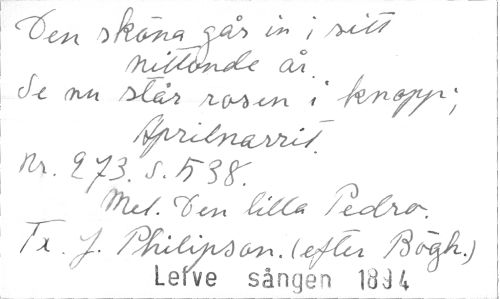 Den sköna går in i sitt
nittonde år.
Se nu står rosen i knopp;
Aprilnarri<br>
Nr. 273. s. 538.
Mel. Den lilla Pedro.
Tx. J. Philipson. (efter Bögh.)
Lefve sången 1894